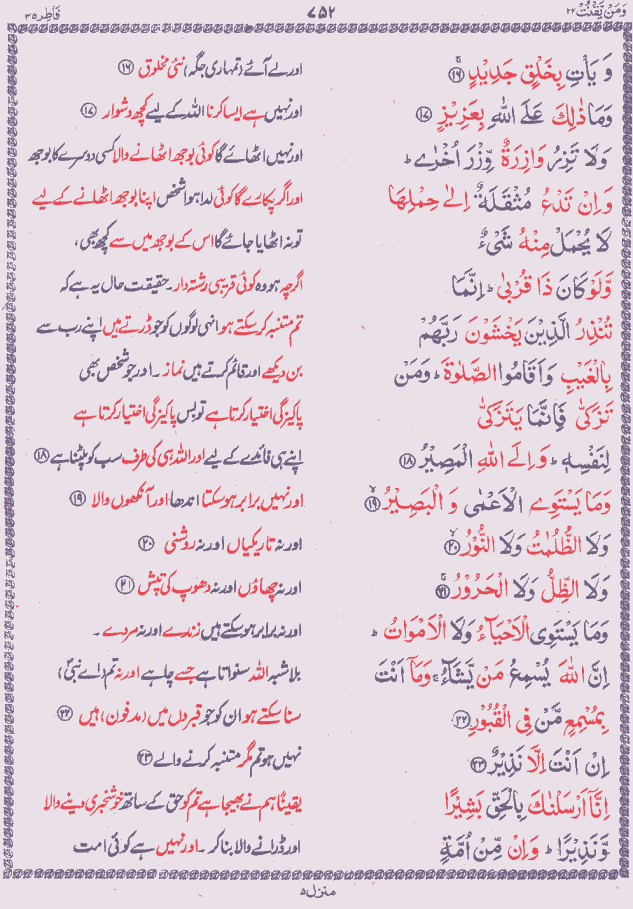 وَمَنْ يَّقْنُتْ ۲۲
۷۵۲
فَاطِر ۳۵
وَ يَاْتِ بِخَلْقٍ جَدِيْدٍ ۚ ﴿۱۶﴾
اور لے آئے (تمہاری جگہ) نئی مخلوق ﴿۱۶﴾
وَمَا ذٰلِكَ عَلَى اللّٰهِ بِعَزِيْزٍ ﴿۱۷﴾
اور نہیں ہے ایسا کرنا اللہ کے لیے کچھ دشوار ﴿۱۷﴾
وَلَا تَزِرُ وَازِرَةٌ وِّزْرَ اُخْرٰى ؕ
اور نہیں اٹھائے گا کوئی بوجھ اٹھانے والا کسی دوسرے کا بوجھ
وَاِنْ تَدْعُ مُثْقَلَةٌ اِلٰى حِمْلِهَا
اور اگر پکارے گا کوئی لدا ہوا شخص اپنا بوجھ اٹھانے کے لیے
لَا يُحْمَلْ مِنْهُ شَىْءٌ
تو نہ اٹھایا جائے گا اس کے بوجھ میں سے کچھ بھی،
وَّلَوْ كَانَ ذَا قُرْبٰى ؕ اِنَّمَا
اگرچہ ہو وہ کوئی قریبی رشتہ دار۔ حقیقت حال یہ ہے کہ
تُنْذِرُ الَّذِيْنَ يَخْشَوْنَ رَبَّهُمْ
تم متنبہ کر سکتے ہو انہی لوگوں کو جو ڈرتے ہیں اپنے رب سے
بِالْغَيْبِ وَاَقَامُوا الصَّلٰوةَ ؕ وَمَنْ
بن دیکھے اور قائم کرتے ہیں نماز۔ اور جو شخص بھی
تَزَكّٰى فَاِنَّمَا يَتَزَكّٰى
پاکیزگی اختیار کرتا ہے تو بس پاکیزگی اختیار کرتا ہے
لِنَفْسِهٖ ؕ وَاِلَى اللّٰهِ الْمَصِيْرُ ﴿۱۸﴾
اپنے ہی فائدے کے لیے اور اللہ ہی کی طرف سب کو پلٹنا ہے ﴿۱۸﴾
وَمَا يَسْتَوِى الْاَعْمٰى وَ الْبَصِيْرُ ۙ ﴿۱۹﴾
اور نہیں برابر ہو سکتا اندھا اور آنکھوں والا ﴿۱۹﴾
وَلَا الظُّلُمٰتُ وَلَا النُّوْرُ ۙ ﴿۲۰﴾
اور نہ تاریکیاں اور نہ روشنی ﴿۲۰﴾
وَلَا الظِّلُّ وَلَا الْحَرُوْرُ ۚ ﴿۲۱﴾
اور نہ چھاؤں اور نہ دھوپ کی تپش ﴿۲۱﴾
وَمَا يَسْتَوِى الْاَحْيَآءُ وَلَا الْاَمْوَاتُ ؕ
اور نہ برابر ہو سکتے ہیں زندے اور نہ مردے۔
اِنَّ اللّٰهَ يُسْمِعُ مَنْ يَّشَآءُ ۚ وَمَآ اَنْتَ
بلاشبہ اللہ سنواتا ہے جسے چاہے اور نہ تم (اے نبیؐ)
بِمُسْمِعٍ مَّنْ فِى الْقُبُوْرِ ﴿۲۲﴾
سنا سکتے ہو ان کو جو قبروں میں (مدفون) ہیں ﴿۲۲﴾
اِنْ اَنْتَ اِلَّا نَذِيْرٌ ﴿۲۳﴾
نہیں ہو تم مگر متنبہ کرنے والے ﴿۲۳﴾
اِنَّآ اَرْسَلْنٰكَ بِالْحَقِّ بَشِيْرًا
یقیناً ہم نے بھیجا ہے تم کو حق کے ساتھ خوشخبری دینے والا
وَّنَذِيْرًا ؕ وَاِنْ مِّنْ اُمَّةٍ
اور ڈرانے والا بنا کر۔ اور نہیں ہے کوئی امت
منزل ۵